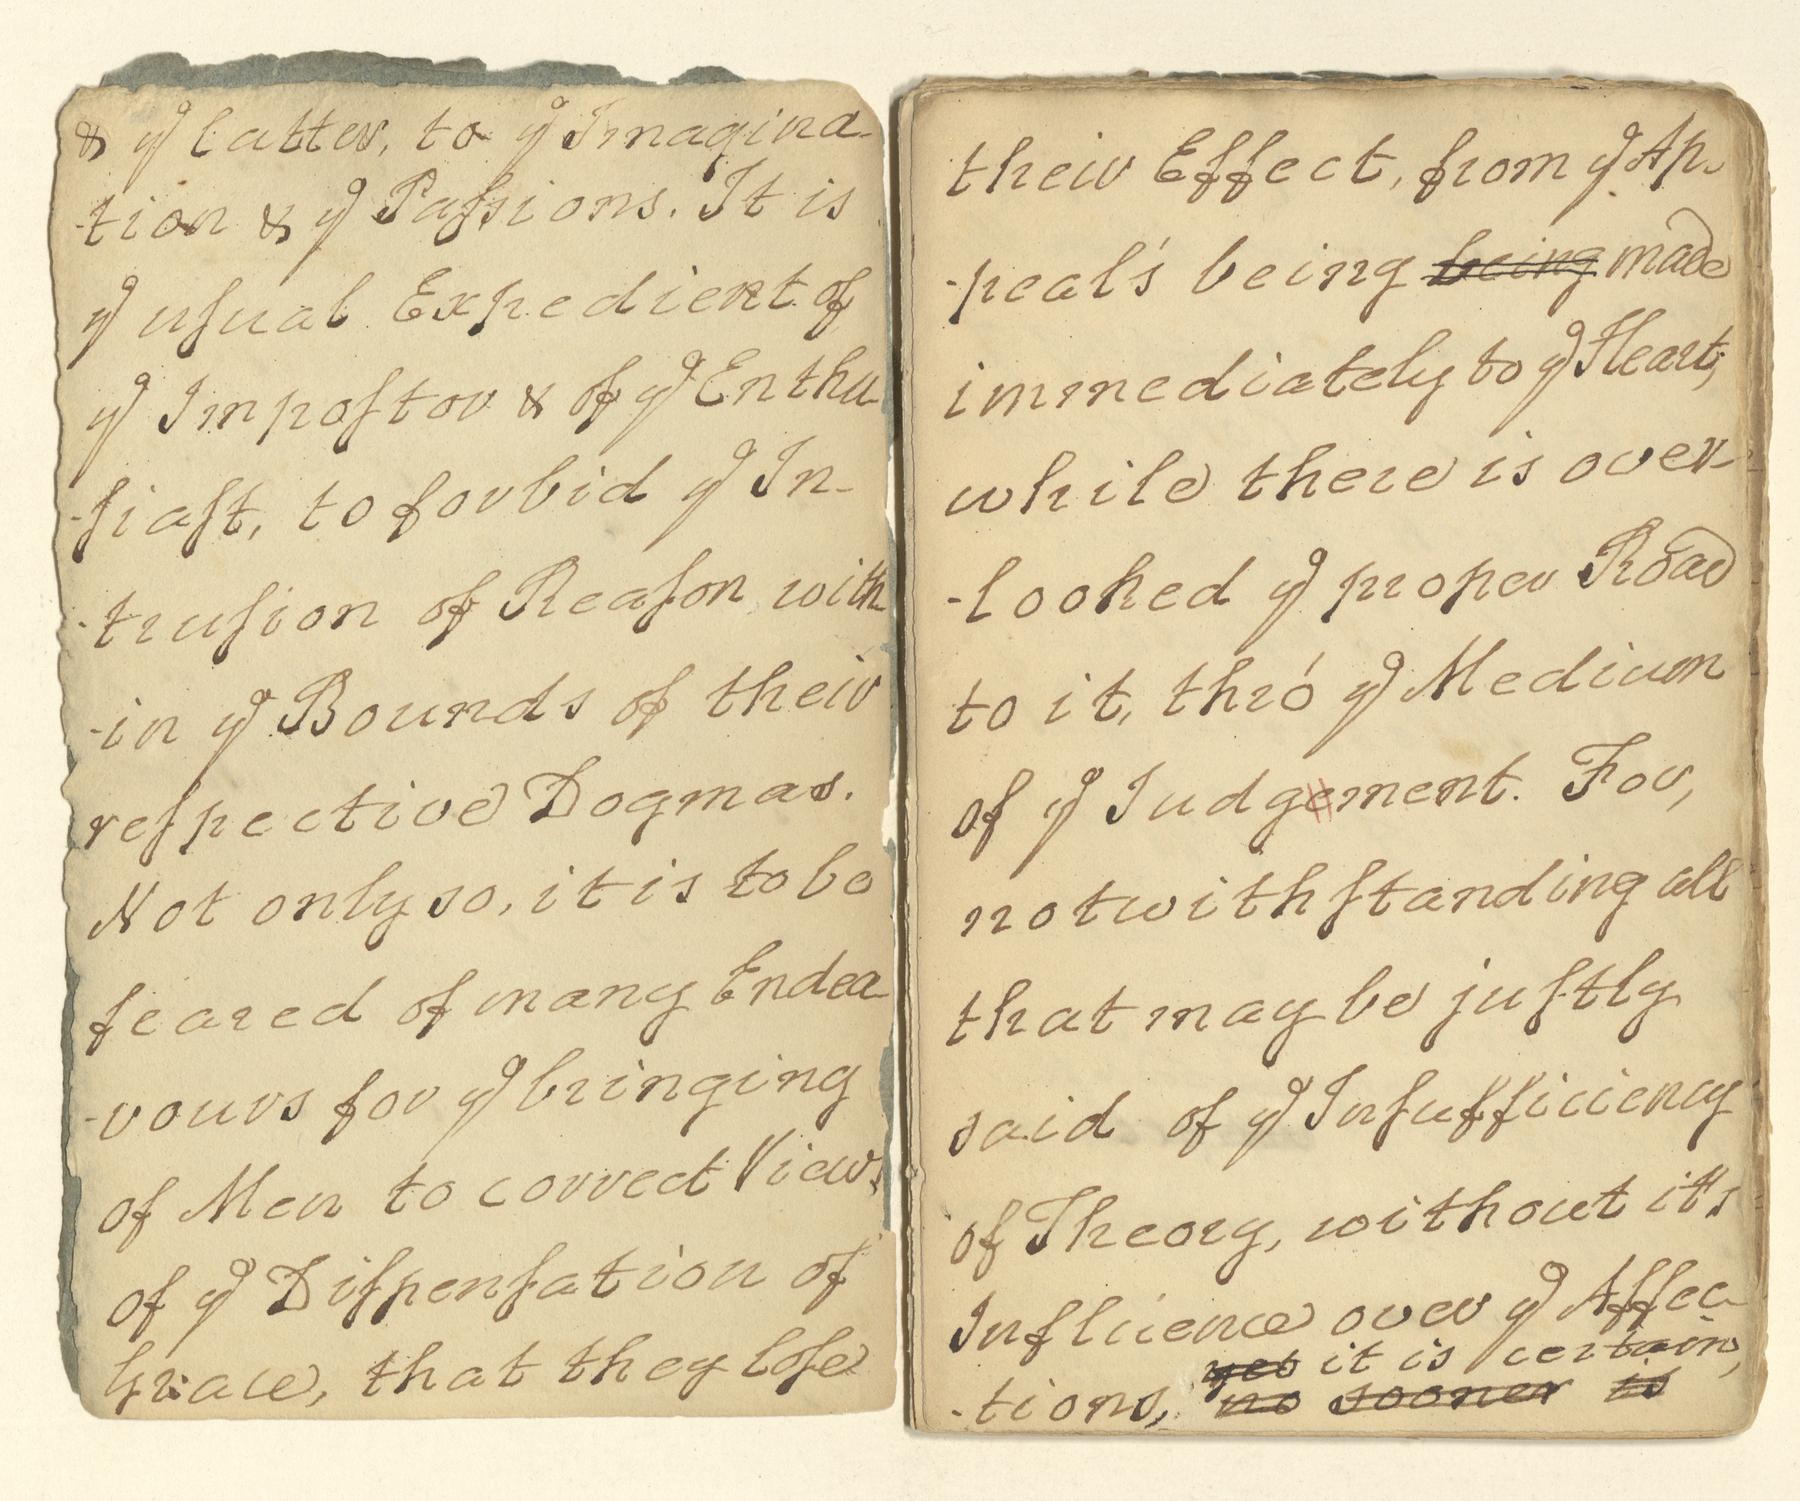 & yͤ latter, to yͤ Imagina-
-tion & yͤ Paſsions. It is
yͤ uſual Expedient of
yͤ Impoſtor & of yͤ Enthu-
-ſiaſt, to forbid yͤ In-
-truſion of Reaſon with
-in yͤ Bounds of their
reſpective Dogmas.
Not only so, it is to be
feared of many Endea-
-vours for yͤ bringing
of Men to correct Views
of yͤ Diſpenſation of
Grace, that they loſe
their Effect, from yͤ Ap-
-peal's being being made
immediately to yͤ Heart;
while there is over-
-looked yͤ proper Road
to it, thro' yͤ Medium
of yͤ Judgement. For,
notwithſtanding all
that may be juſtly
said of yͤ Inſufficiency
of Theory, without it's
Influence over yͤ Affec-
yet it is certain,
-tions, no sooner is